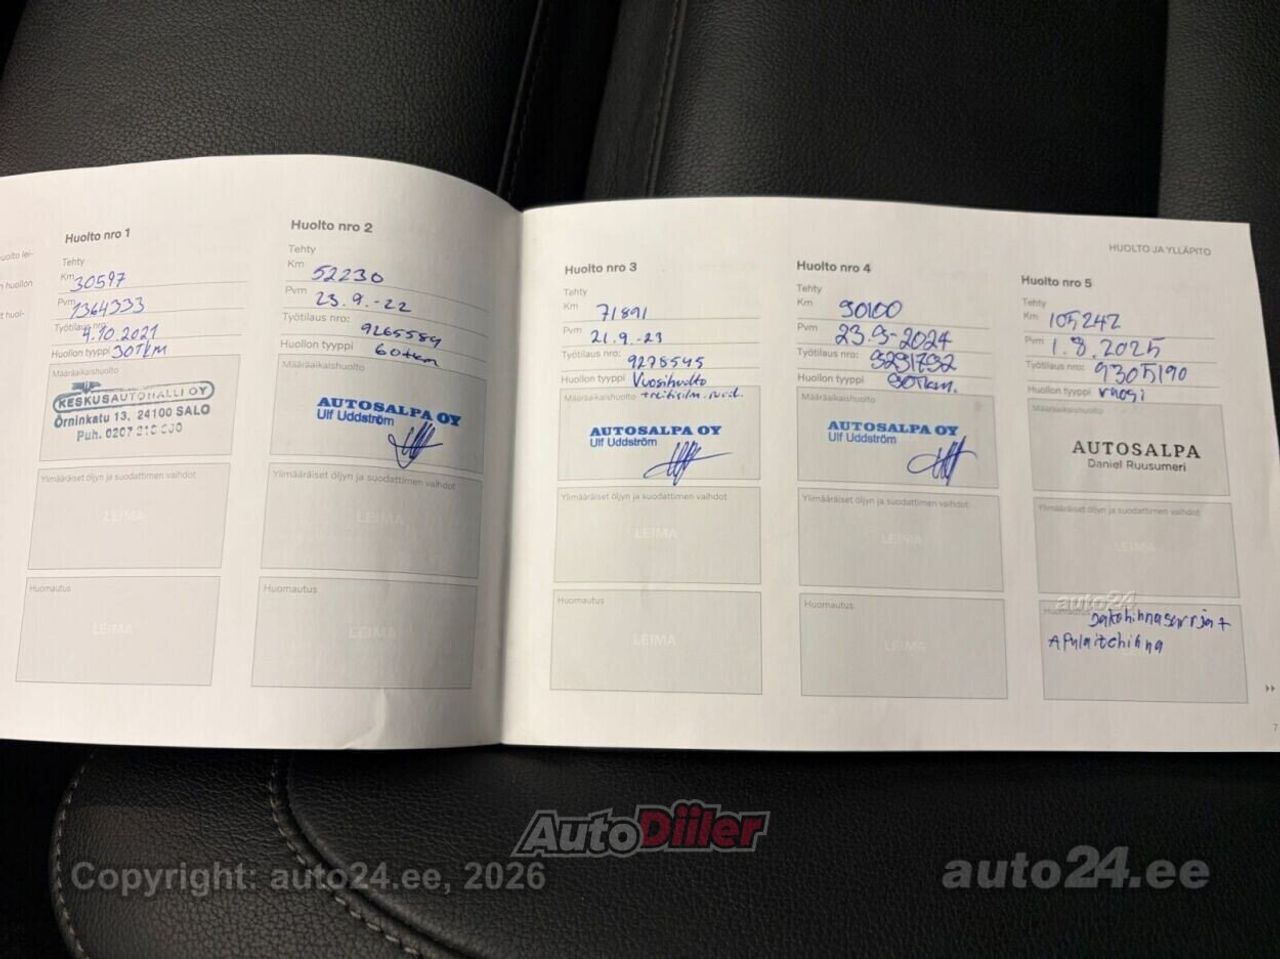 HUOLTO JA YLLÄPITO
Huolto nro 1
Tehty
Km 30597
Pvm 1364333
Työtilaus nro:
4.10.2021
Huollon tyyppi 30TKM
Määräaikaishuolto
KESKUSAUTOHALLI OY
Örninkatu 13, 24100 SALO
Puh. 0207
Ylimääräiset öljyn ja suodattimen vaihdot
LEIMA
Huomautus
LEIMA
Huolto nro 2
Tehty
Km 52230
Pvm 23.9.-22
Työtilaus nro: 9265589
Huollon tyyppi 60tkm
Määräaikaishuolto
AUTOSALPA OY
Ulf Uddström
Ylimääräiset öljyn ja suodattimen vaihdot
LEIMA
Huomautus
LEIMA
Huolto nro 3
Tehty
Km 71891
Pvm 21.9.-23
Työtilaus nro: 9278545
Huollon tyyppi Vuosihuolto
Määräaikaishuolto
AUTOSALPA OY
Ulf Uddström
Ylimääräiset öljyn ja suodattimen vaihdot
LEIMA
Huomautus
LEIMA
Huolto nro 4
Tehty
Km 90100
Pvm 23.9-2024
Työtilaus nro: 9291792
Huollon tyyppi 90Tkm.
Määräaikaishuolto
AUTOSALPA OY
Ulf Uddström
Ylimääräiset öljyn ja suodattimen vaihdot
LEIMA
Huomautus
LEIMA
Huolto nro 5
Tehty
Km 105242
Pvm 1.8.2025
Työtilaus nro: 9305190
Huollon tyyppi vuosi
Määräaikaishuolto
AUTOSALPA
Daniel Ruusumeri
Ylimääräiset öljyn ja suodattimen vaihdot
LEIMA
auto24
Huomautus Jakohihnasarja+
Apulaitehihna
7
AutoDiiler
Copyright: auto24.ee, 2026
auto24.ee